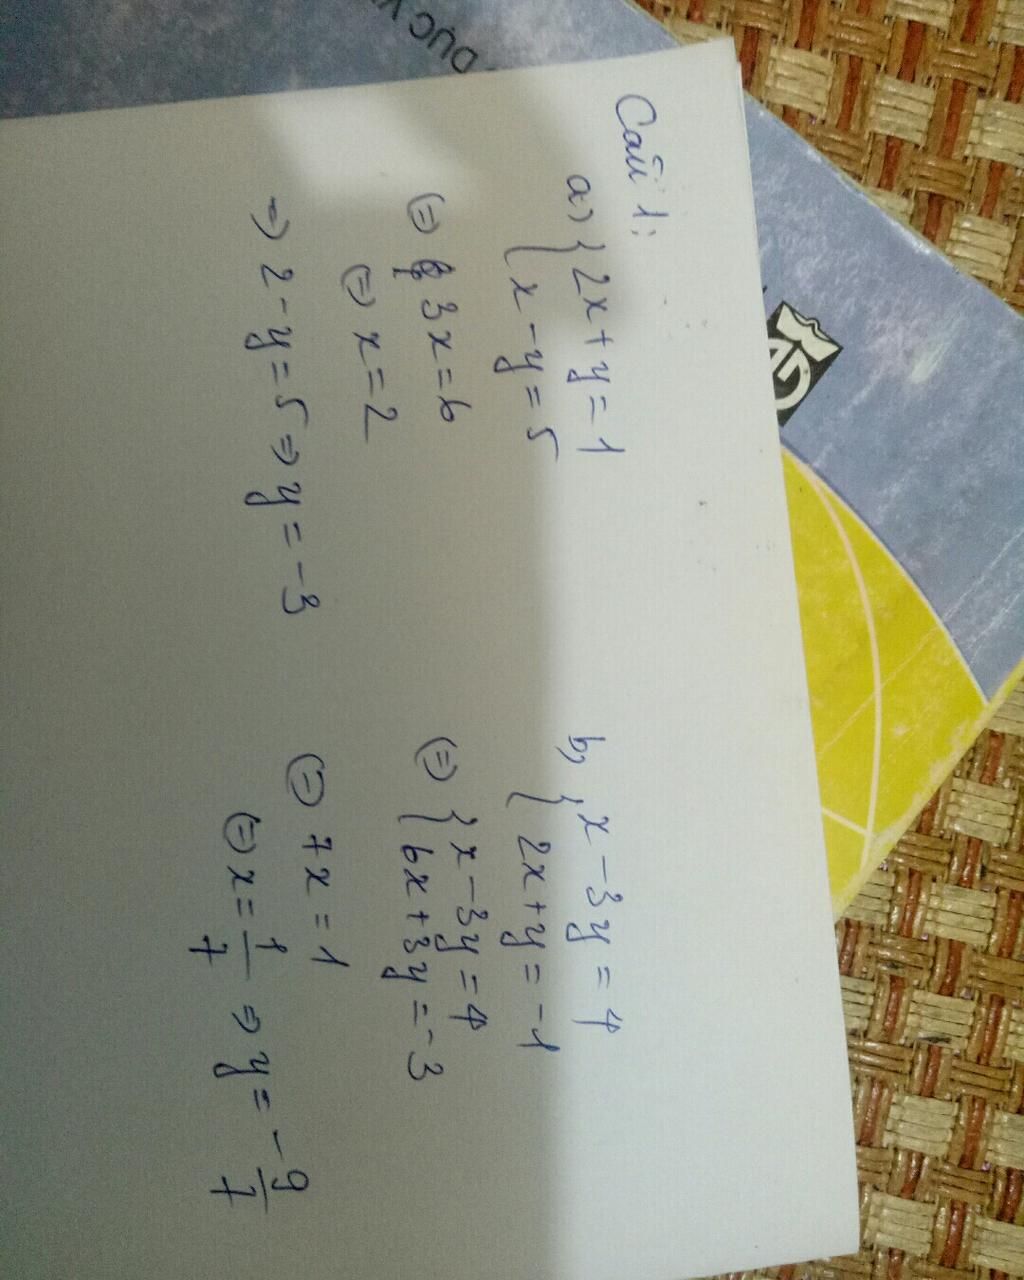 Câu 1:
a) { 2x + y = 1
x - y = 5
(=) 3x = 6
(=) x = 2
=) 2 - y = 5 =) y = -3
b) { x - 3y = 4
2x + y = -1
(=) { x - 3y = 4
6x + 3y = -3
(=) 7x = 1
(=) x = 1/7 =) y = -9/7
DỤC V